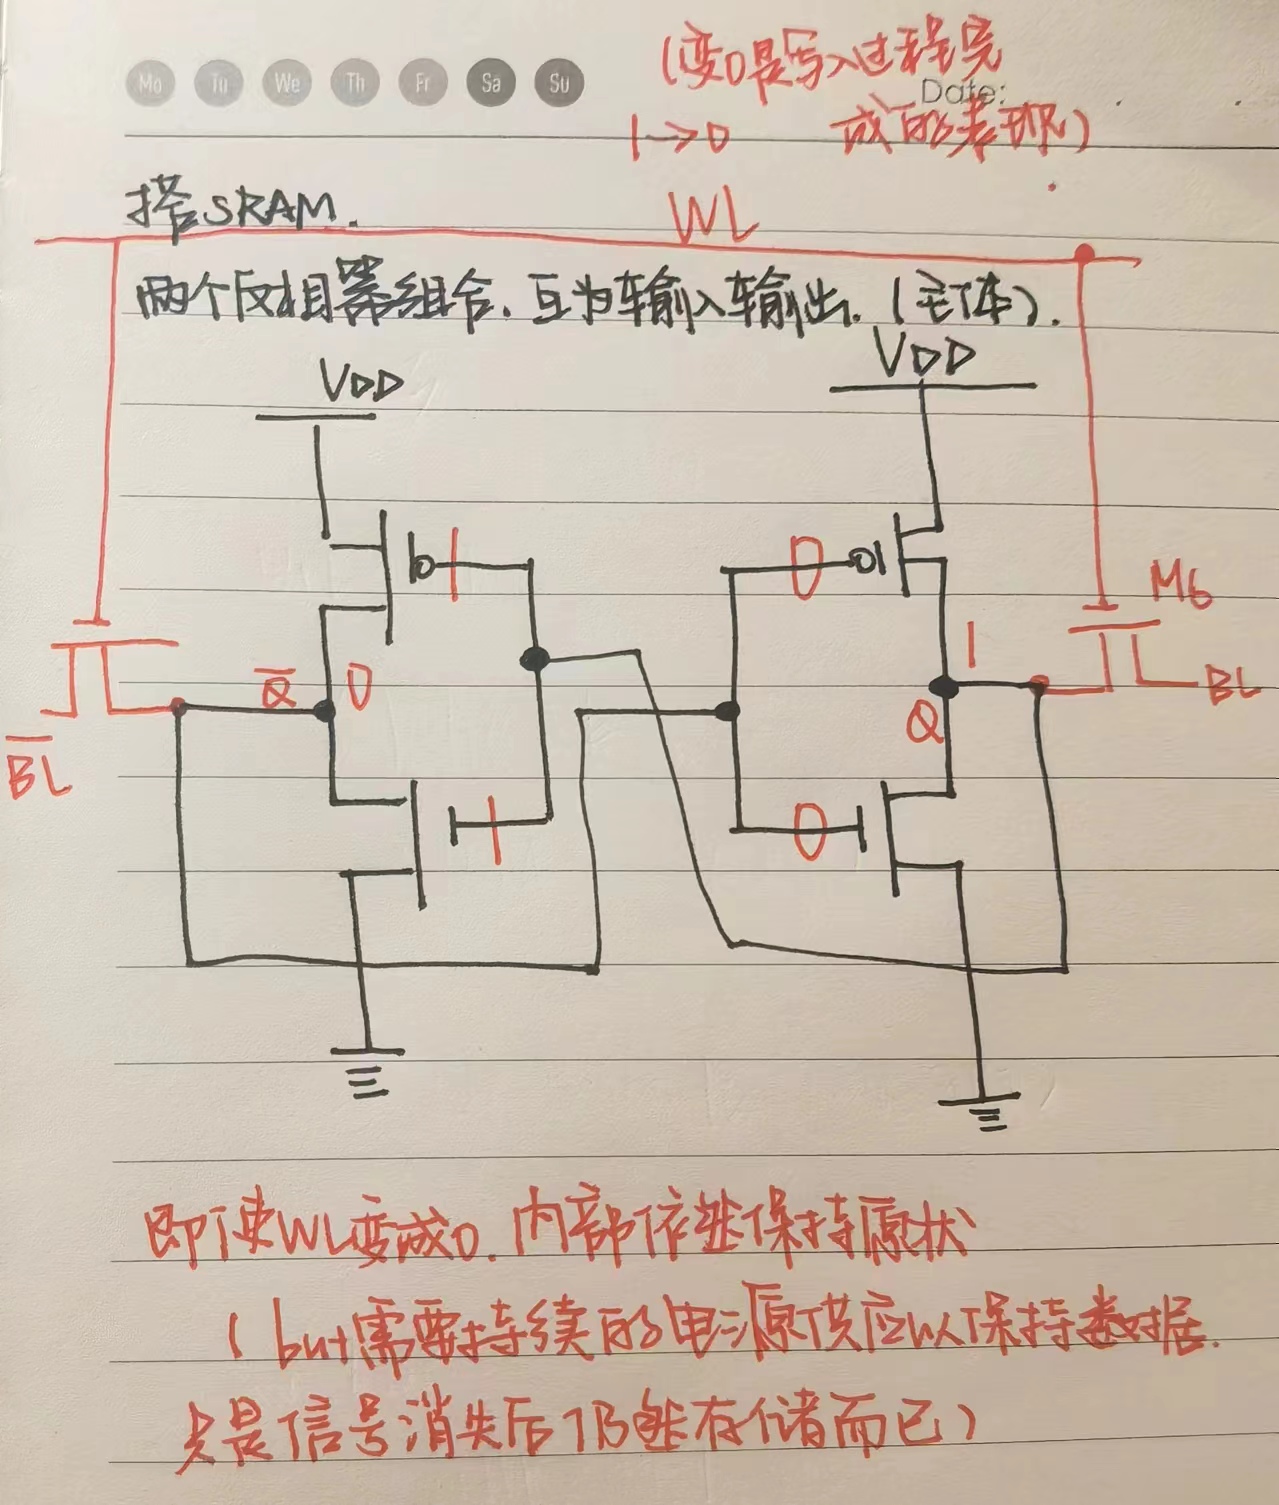 (变0是写入过程完
Mo Tu We Th Fr Sa Su
Date:
1→0 成的表现)
搭SRAM.
WL
两个反相器组合.互为输入输出.(主体).
VDD
VDD
1
0
M6
Q̅
0
1
BL
Q
B̅L̅
1
0
即使WL变成0.内部依然保持原状
(but需要持续的电源供应以保持数据.
只是信号消失后仍能存储而已)